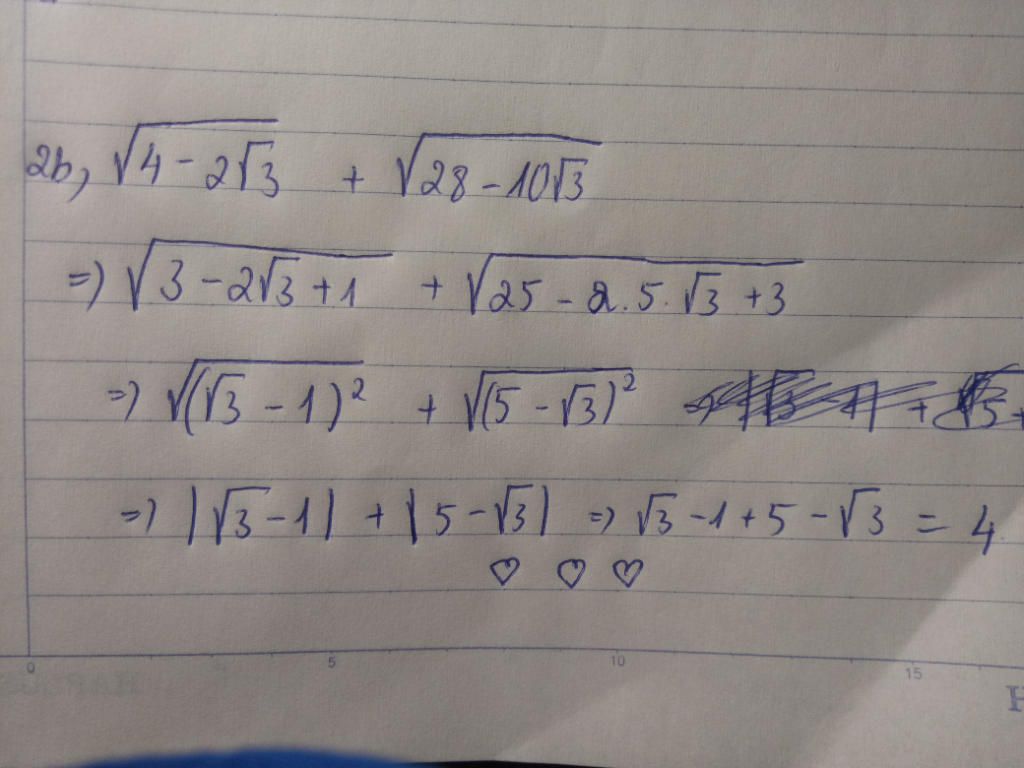 2b, √(4 - 2√3) + √(28 - 10√3)
=) √(3 - 2√3 + 1) + √(25 - 2.5.√3 + 3)
=) √((√3 - 1)²) + √((5 - √3)²)
=) |√3 - 1| + |5 - √3| =) √3 - 1 + 5 - √3 = 4
♡ ♡ ♡
0 5 10 15
H